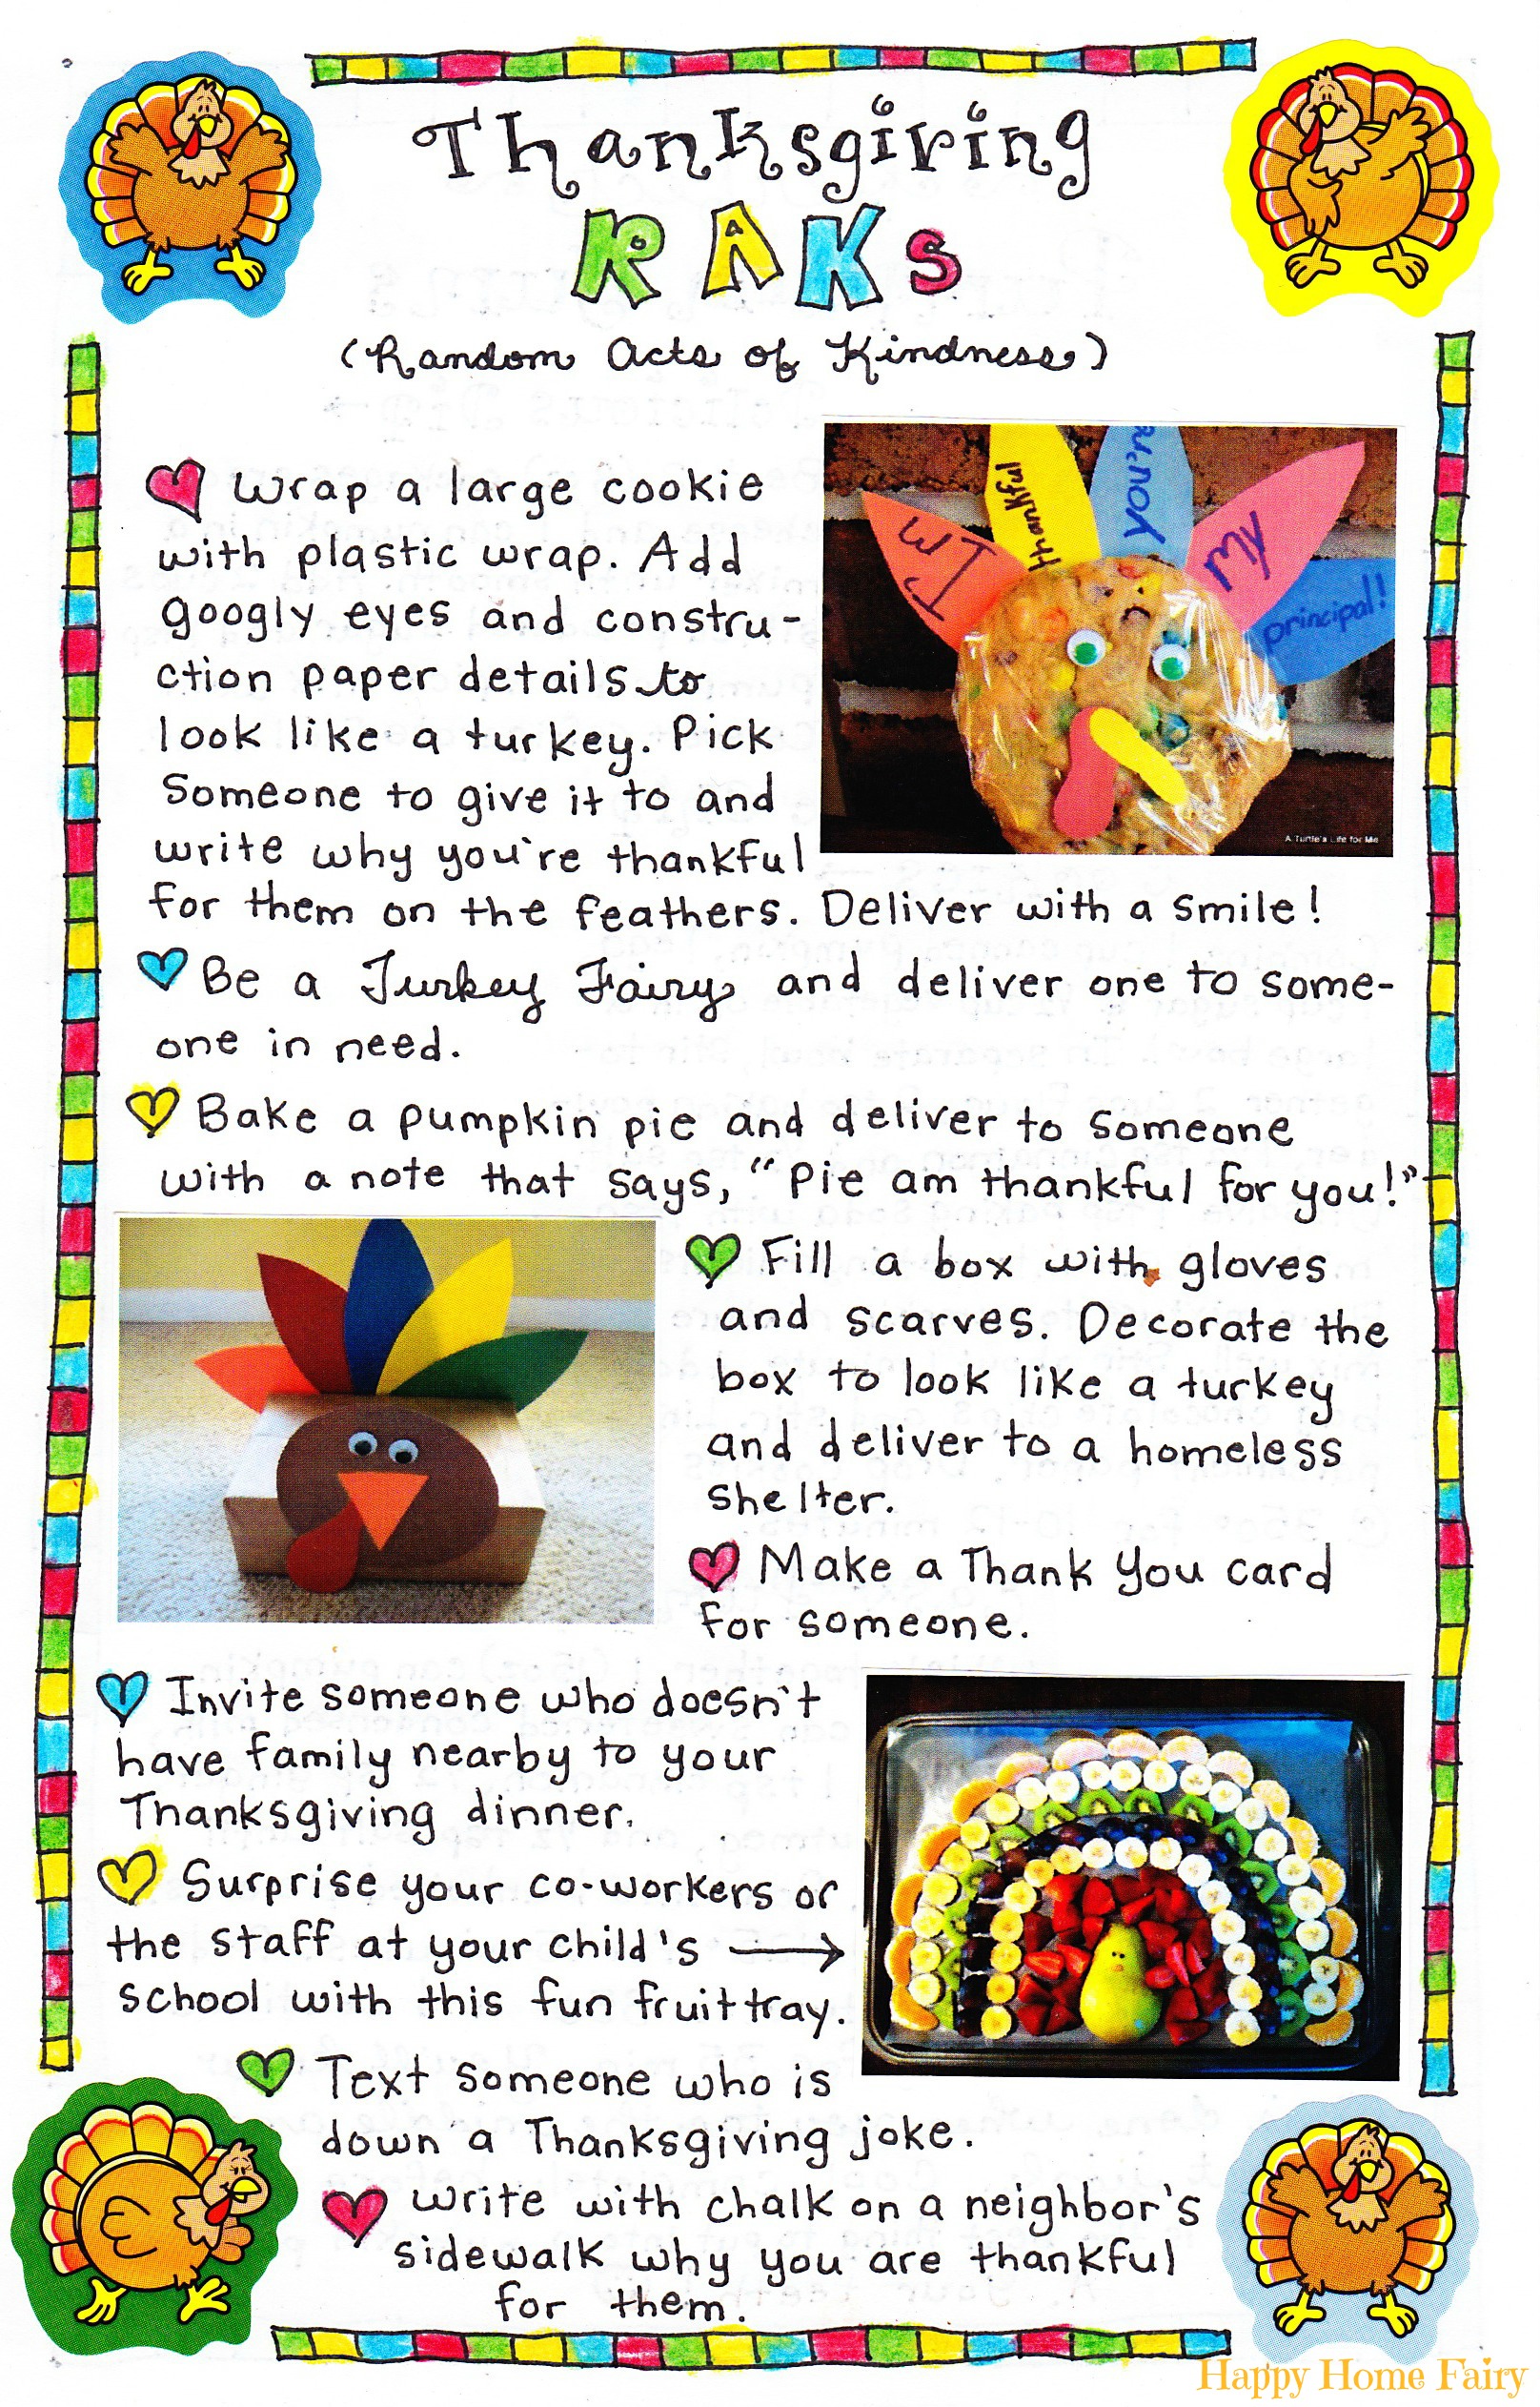 Thanksgiving
RAKs
(Random Acts of Kindness)
Wrap a large cookie
with plastic wrap. Add
googly eyes and constru-
ction paper details to
look like a turkey. Pick
someone to give it to and
write why you're thankful
for them on the feathers. Deliver with a smile!
I'm
thankful
you're
My
principal!
A Turtle's Life for Me
Be a Turkey Fairy and deliver one to some-
one in need.
Bake a pumpkin pie and deliver to someone
with a note that says, "Pie am thankful for you!"
Fill a box with gloves
and scarves. Decorate the
box to look like a turkey
and deliver to a homeless
shelter.
Make a Thank You card
for someone.
Invite someone who doesn't
have family nearby to your
Thanksgiving dinner.
Surprise your co-workers or
the staff at your child's
school with this fun fruit tray.
Text someone who is
down a Thanksgiving joke.
Write with chalk on a neighbor's
sidewalk why you are thankful
for them.
Happy Home Fairy